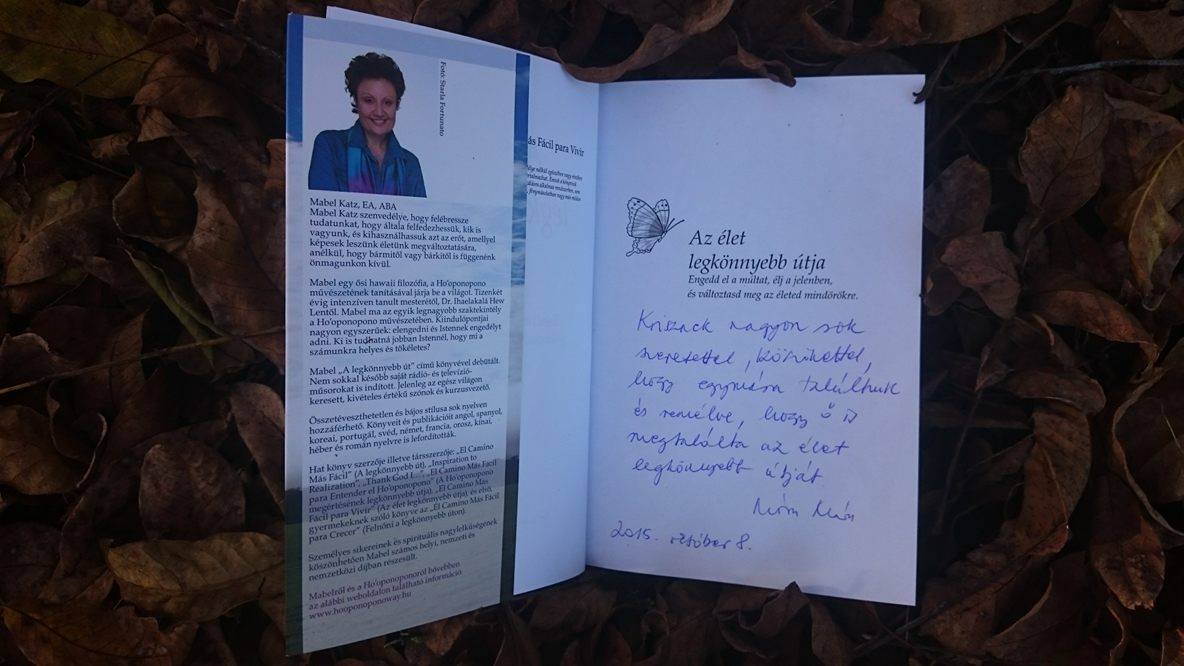 Fotó: Starla Fortunato
Mabel Katz, EA, ABA
Mabel Katz szenvedélye, hogy felébressze
tudatunkat, hogy általa felfedezhessük, kik is
vagyunk, és kihasználhassuk azt az erőt, amellyel
képesek leszünk életünk megváltoztatására,
anélkül, hogy bármitől vagy bárkitől is függenénk
önmagunkon kívül.
Mabel egy ősi hawaii filozófia, a Ho'oponopono
művészetének tanításával járja be a világot. Tizenkét
évig intenzíven tanult mesterétől, Dr. Ihaleakalá Hew
Lentől. Mabel ma az egyik legnagyobb szaktekintély
a Ho'oponopono művészetében. Kiindulópontjai
nagyon egyszerűek: elengedni és Istennek engedélyt
adni. Ki is tudhatná jobban Istennél, hogy mi a
számunkra helyes és tökéletes?
Mabel „A legkönnyebb út” című könyvével debütált.
Nem sokkal később saját rádió- és televízió-
műsorokat is indított. Jelenleg az egész világon
keresett, kivételes értékű szónok és kurzusvezető.
Összetéveszthetetlen és bájos stílusa sok nyelven
hozzáférhető. Könyveit és publikációit angol, spanyol,
koreai, portugál, svéd, német, francia, orosz, kínai,
héber és román nyelvre is lefordították.
Hat könyv szerzője illetve társszerzője: „El Camino
Más Fácil” (A legkönnyebb út), „Inspiration to
Realization”, „Thank God I...”, „El Camino Más Facil
para Entender el Ho'oponopono” (A Ho'oponopono
megértésének legkönnyebb útja), „El Camino Más
Fácil para Vivir” (Az élet legkönnyebb útja), és első,
gyermekeknek szóló könyve az „El Camino Más Fácil
para Crecer” (Felnőni a legkönnyebb úton).
Személyes sikereinek és spirituális nagylelkűségének
köszönhetően Mabel számos helyi, nemzeti és
nemzetközi díjban részesült.
Mabelről és a Ho'oponoponoról bővebben
az alábbi weboldalon található információ
www.hooponoponoway.hu
ás Fácil para Vivir
Az élet
legkönnyebb útja
Engedd el a múltat, élj a jelenben,
és változtasd meg az életed mindörökre.
Krisznek nagyon sok
szeretettel, köszönettel,
hogy egymásra találtunk
és remélve, hogy ő is
megtalálta az élet
legkönnyebb útját
2015. október 8.